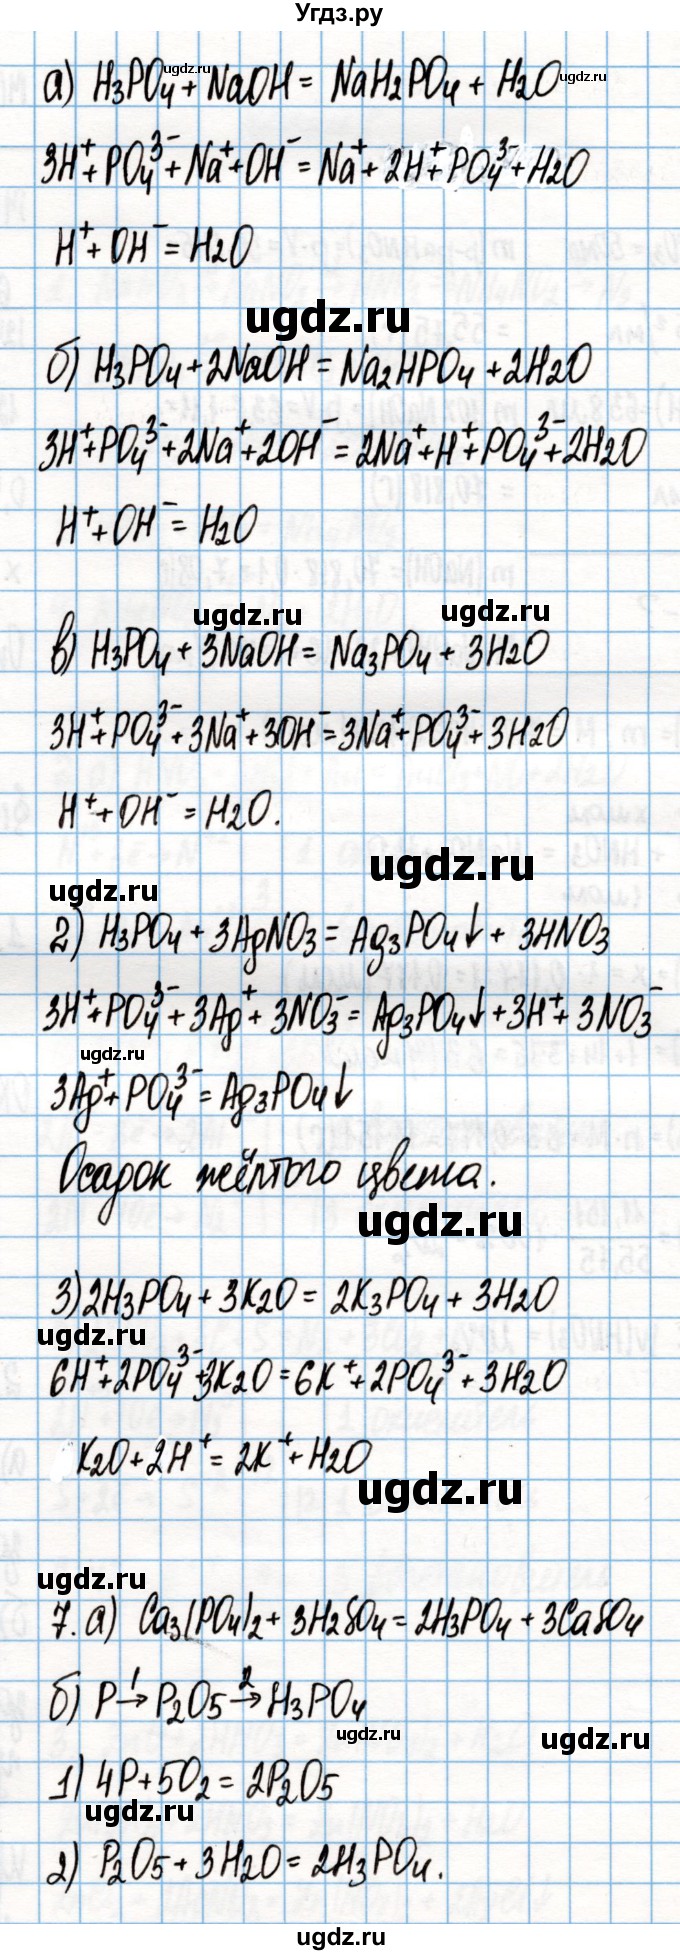 Угдз.ру
а) H₃PO₄ + NaOH = NaH₂PO₄ + H₂O
3H⁺ + PO₄³⁻ + Na⁺ + OH⁻ = Na⁺ + 2H⁺ + PO₄³⁻ + H₂O
H⁺ + OH⁻ = H₂O
ugdz.ru
б) H₃PO₄ + 2NaOH = Na₂HPO₄ + 2H₂O
3H⁺ + PO₄³⁻ + 2Na⁺ + 2OH⁻ = 2Na⁺ + H⁺ + PO₄³⁻ + 2H₂O
H⁺ + OH⁻ = H₂O
ugdz.ru ugdz.ru
в) H₃PO₄ + 3NaOH = Na₃PO₄ + 3H₂O
3H⁺ + PO₄³⁻ + 3Na⁺ + 3OH⁻ = 3Na⁺ + PO₄³⁻ + 3H₂O
H⁺ + OH⁻ = H₂O.
ugdz.ru
ugdz.ru
2) H₃PO₄ + 3AgNO₃ = Ag₃PO₄↓ + 3HNO₃
3H⁺ + PO₄³⁻ + 3Ag⁺ + 3NO₃⁻ = Ag₃PO₄↓ + 3H⁺ + 3NO₃⁻
ugdz.ru
3Ag⁺ + PO₄³⁻ = Ag₃PO₄↓
Осадок жёлтого цвета.
ugdz.ru
3) 2H₃PO₄ + 3K₂O = 2K₃PO₄ + 3H₂O
ugdz.ru
6H⁺ + 2PO₄³⁻ + 3K₂O = 6K⁺ + 2PO₄³⁻ + 3H₂O
K₂O + 2H⁺ = 2K⁺ + H₂O
ugdz.ru
ugdz.ru
7. а) Ca₃(PO₄)₂ + 3H₂SO₄ = 2H₃PO₄ + 3CaSO₄
б) P →¹ P₂O₅ →² H₃PO₄
ugdz.ru ugdz.ru
1) 4P + 5O₂ = 2P₂O₅
ugdz.ru
2) P₂O₅ + 3H₂O = 2H₃PO₄.
ugdz.ru